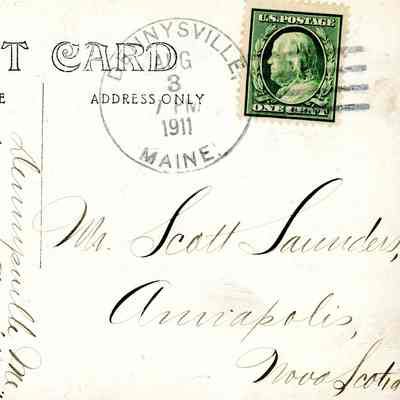 T CARD
E
ADDRESS ONLY
DENNYSVILLE,
AUG
3
7 PM
1911
MAINE.
U.S. POSTAGE
ONE CENT
Dennysville, Me.
Mr. Scott Saunders,
Annapolis,
Nova Scotia